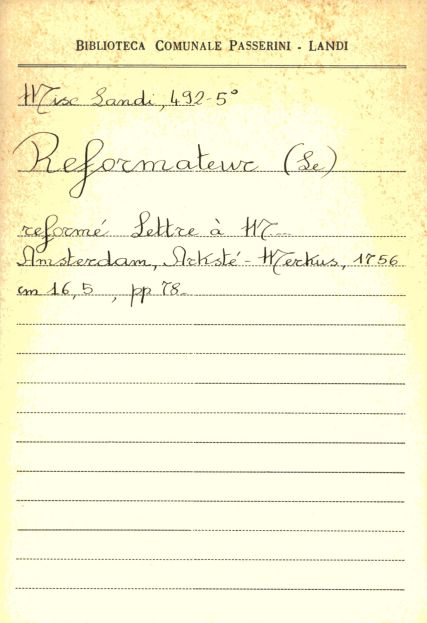 BIBLIOTECA COMUNALE PASSERINI - LANDI
Misc Landi, 492-5°
Reformateur (Le)
reformé Lettre à M--
Amsterdam, Arksté-Merkus, 1756
cm 16,5, pp 78-